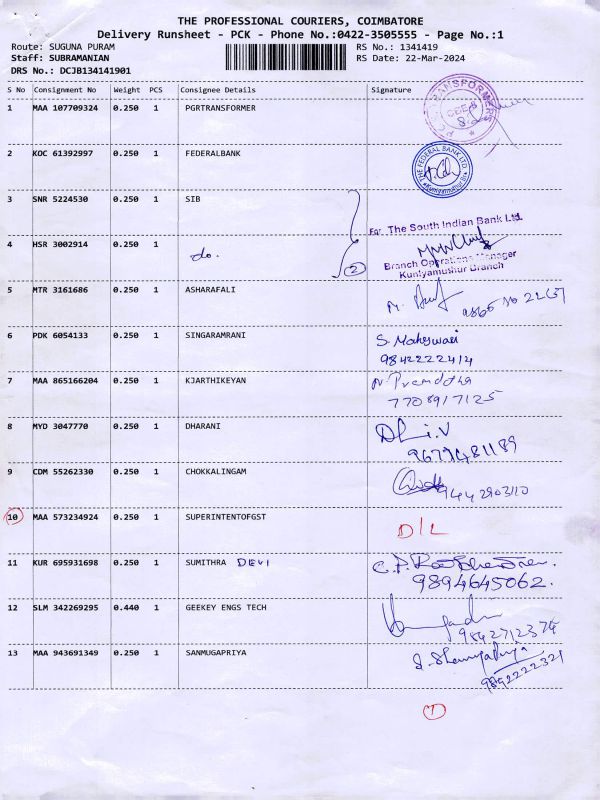 THE PROFESSIONAL COURIERS, COIMBATORE
Delivery Runsheet - PCK - Phone No.:0422-3505555 - Page No.:1
Route: SUGUNA PURAM RS No.: 1341419
Staff: SUBRAMANIAN RS Date: 22-Mar-2024
DRS No.: DCJB134141901
S No Consignment No Weight PCS Consignee Details Signature
1 MAA 107709324 0.250 1 PGRTRANSFORMER
TRANSFORMERS
2 KOC 61392997 0.250 1 FEDERALBANK
THE FEDERAL BANK LTD
Kuniyamuthur
3 SNR 5224530 0.250 1 SIB
For The South Indian Bank Ltd.
4 HSR 3002914 0.250 1 do. 2
Branch Operations Manager
Kuniyamuthur Branch
5 MTR 3161686 0.250 1 ASHARAFALI
6 PDK 6054133 0.250 1 SINGARAMRANI S. Maheswari
9842222414
7 MAA 865166204 0.250 1 KJARTHIKEYAN
7708917125
8 MYD 3047770 0.250 1 DHARANI
9679481189
9 CDM 55262330 0.250 1 CHOKKALINGAM
9442903110
10 MAA 573234924 0.250 1 SUPERINTENTOFGST D/L
11 KUR 695931698 0.250 1 SUMITHRA DEVI
9894645062.
12 SLM 342269295 0.440 1 GEEKEY ENGS TECH
9842712374
13 MAA 943691349 0.250 1 SANMUGAPRIYA
9892222321
1